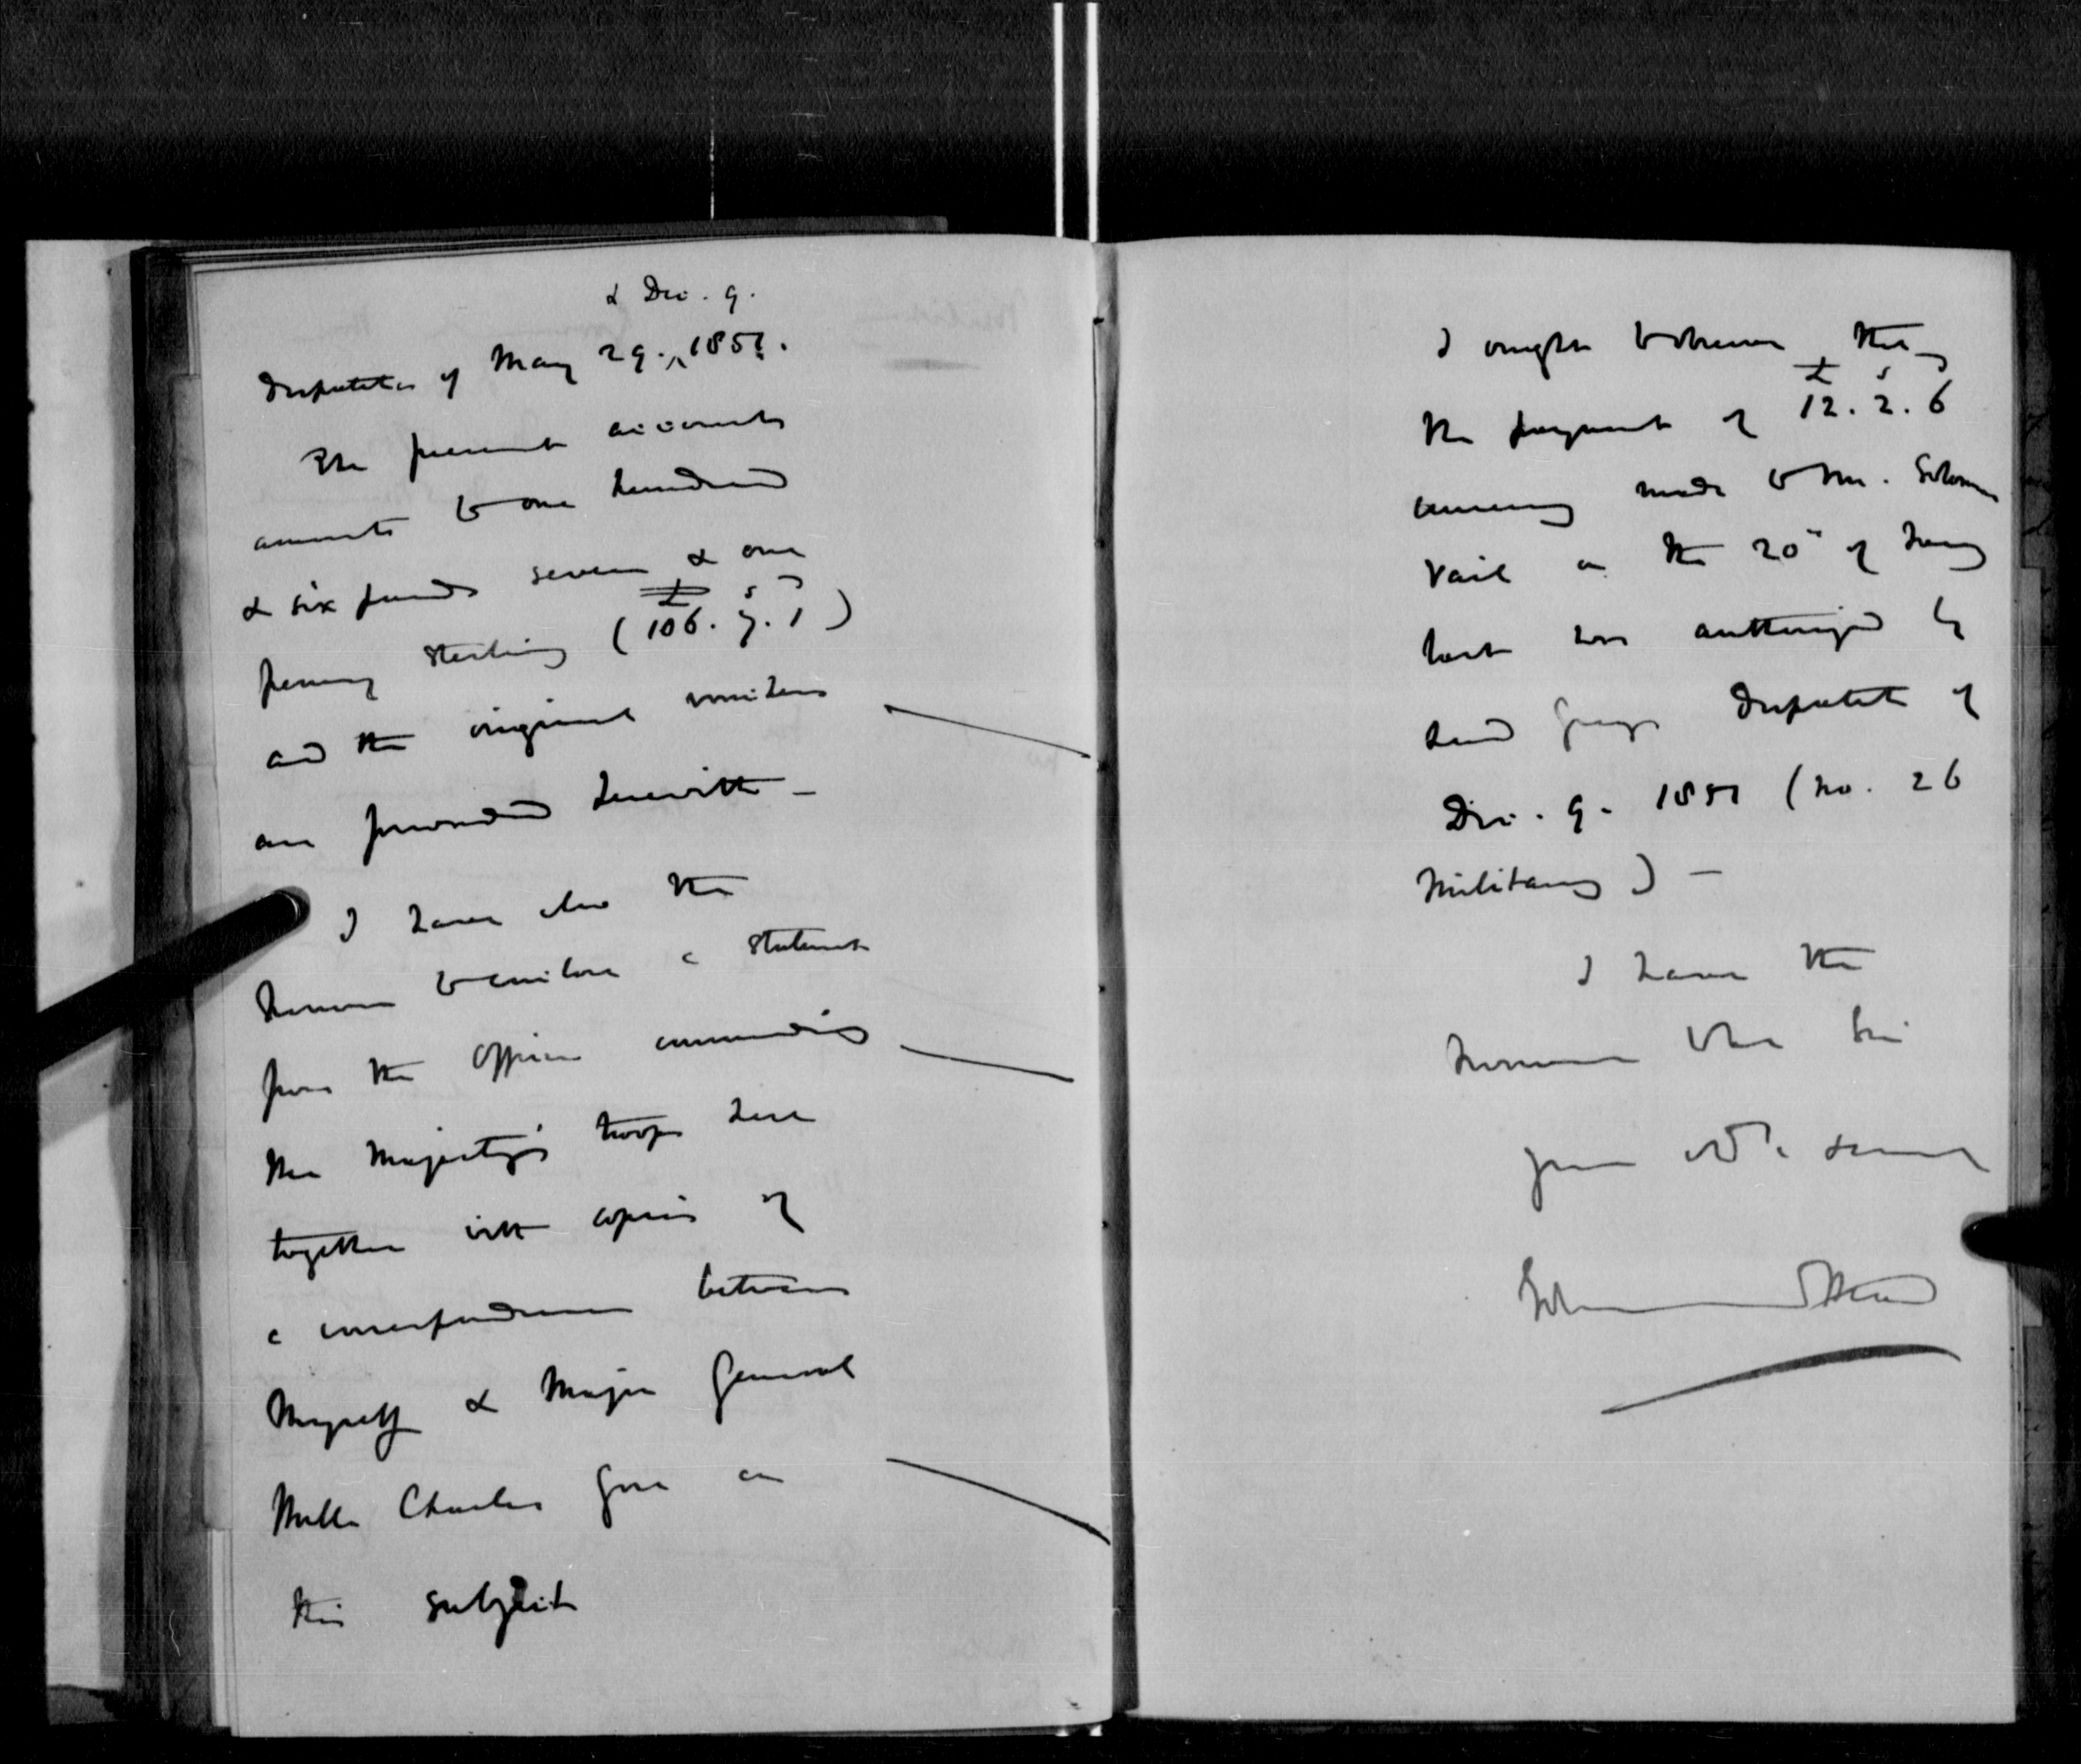 & Dec. 9.
Despatches of May 29. ^ 1851.
The present accounts
amounts to one hundred
& six pounds seven & one
penny sterling (£106. s7. 1)
and the original vouchers
are forwarded herewith –
I have also the
honour to enclose a statement
from the Officer commanding
Her Majesty's troops here
together with copies of
a correspondence between
Myself & Major General
Charles Gore on
this subject
I ought to observe that
the payment of £12. s2. 6
currency made to Mr.
Vail on the 20th of
last was authorized by
Lord Grey's Despatch of
Dec. 9. 1851 (No. 26
Military) –
I have the
honour to be
your servant
Edmund Head